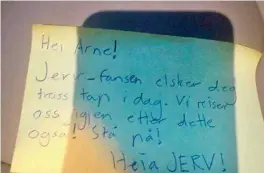 Hei Arne!
Jerv-fansen elsker deg
tross tap i dag. Vi reiser
oss igjen etter dette
også! Stå på!
Heia JERV!